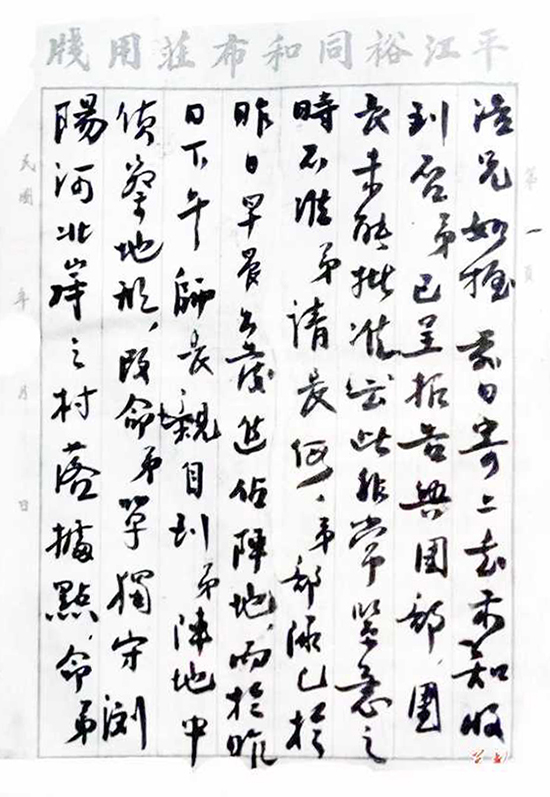 平江裕同和布莊用牋
第一頁
兄如握 前日寄上 知收
到否 弟已呈报告與團部,團
長未能批准云此非常緊急之
時不准弟請長假,弟部隊已於
昨日早晨出發進佔陣地,而於昨
日下午師長親自到弟陣地中
偵察地形,改命弟單獨守浏
陽河北岸之村落據點,命弟
民國 年 月 日